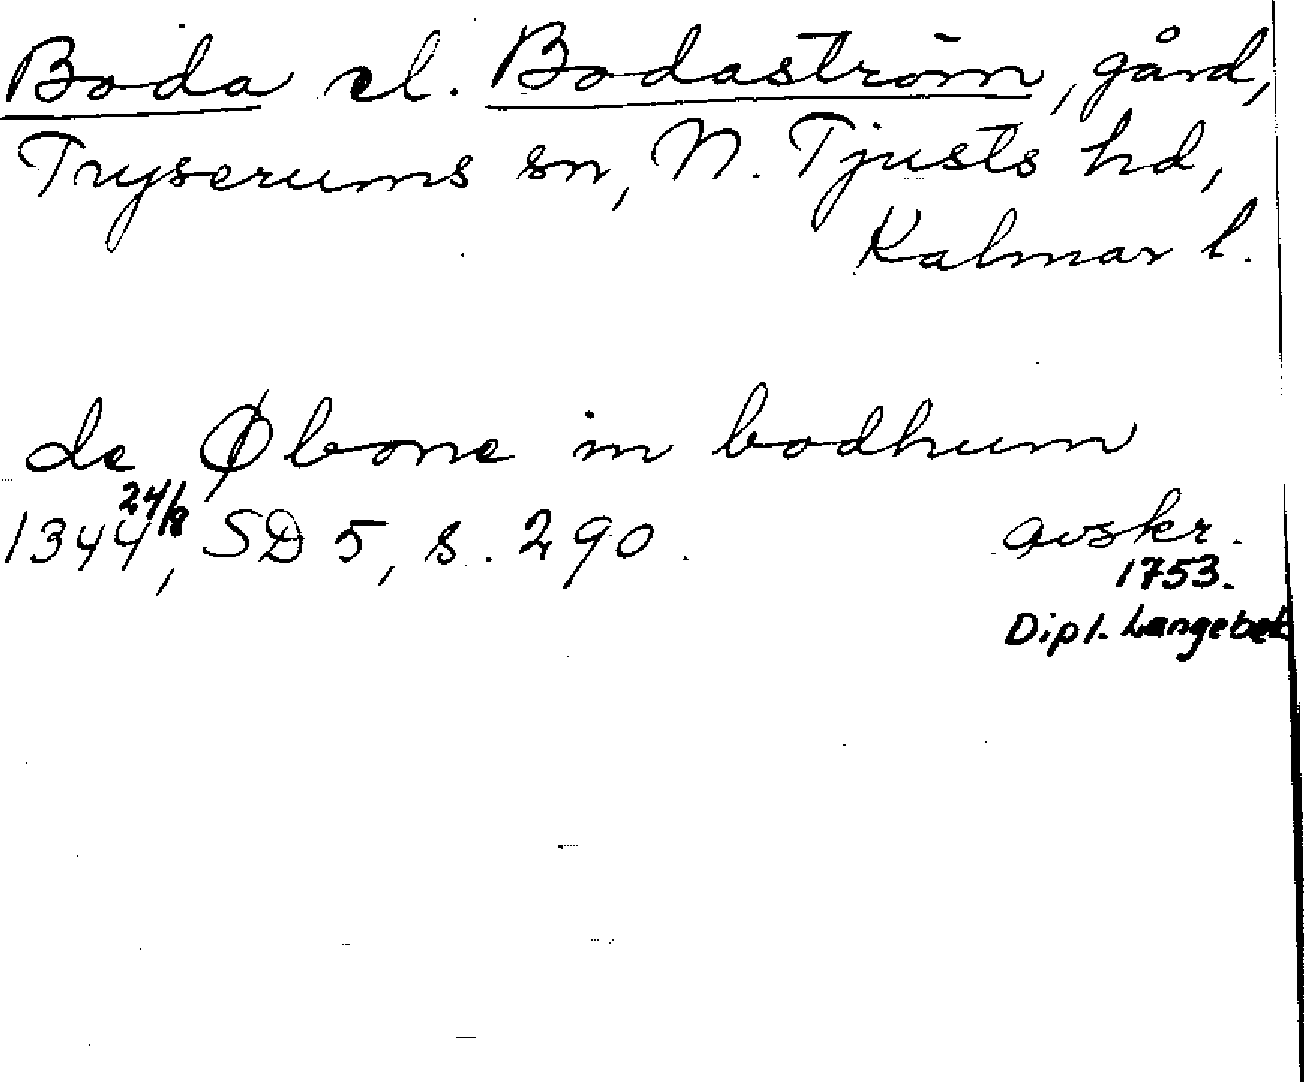 Boda el. Bodaström, gård,
Tryserums sn, N. Tjusts hd,
Kalmar l.
de Øbone in bodhum
1344 24/8, SD 5, s. 290.
avskr.
1753.
Dipl. Langebek